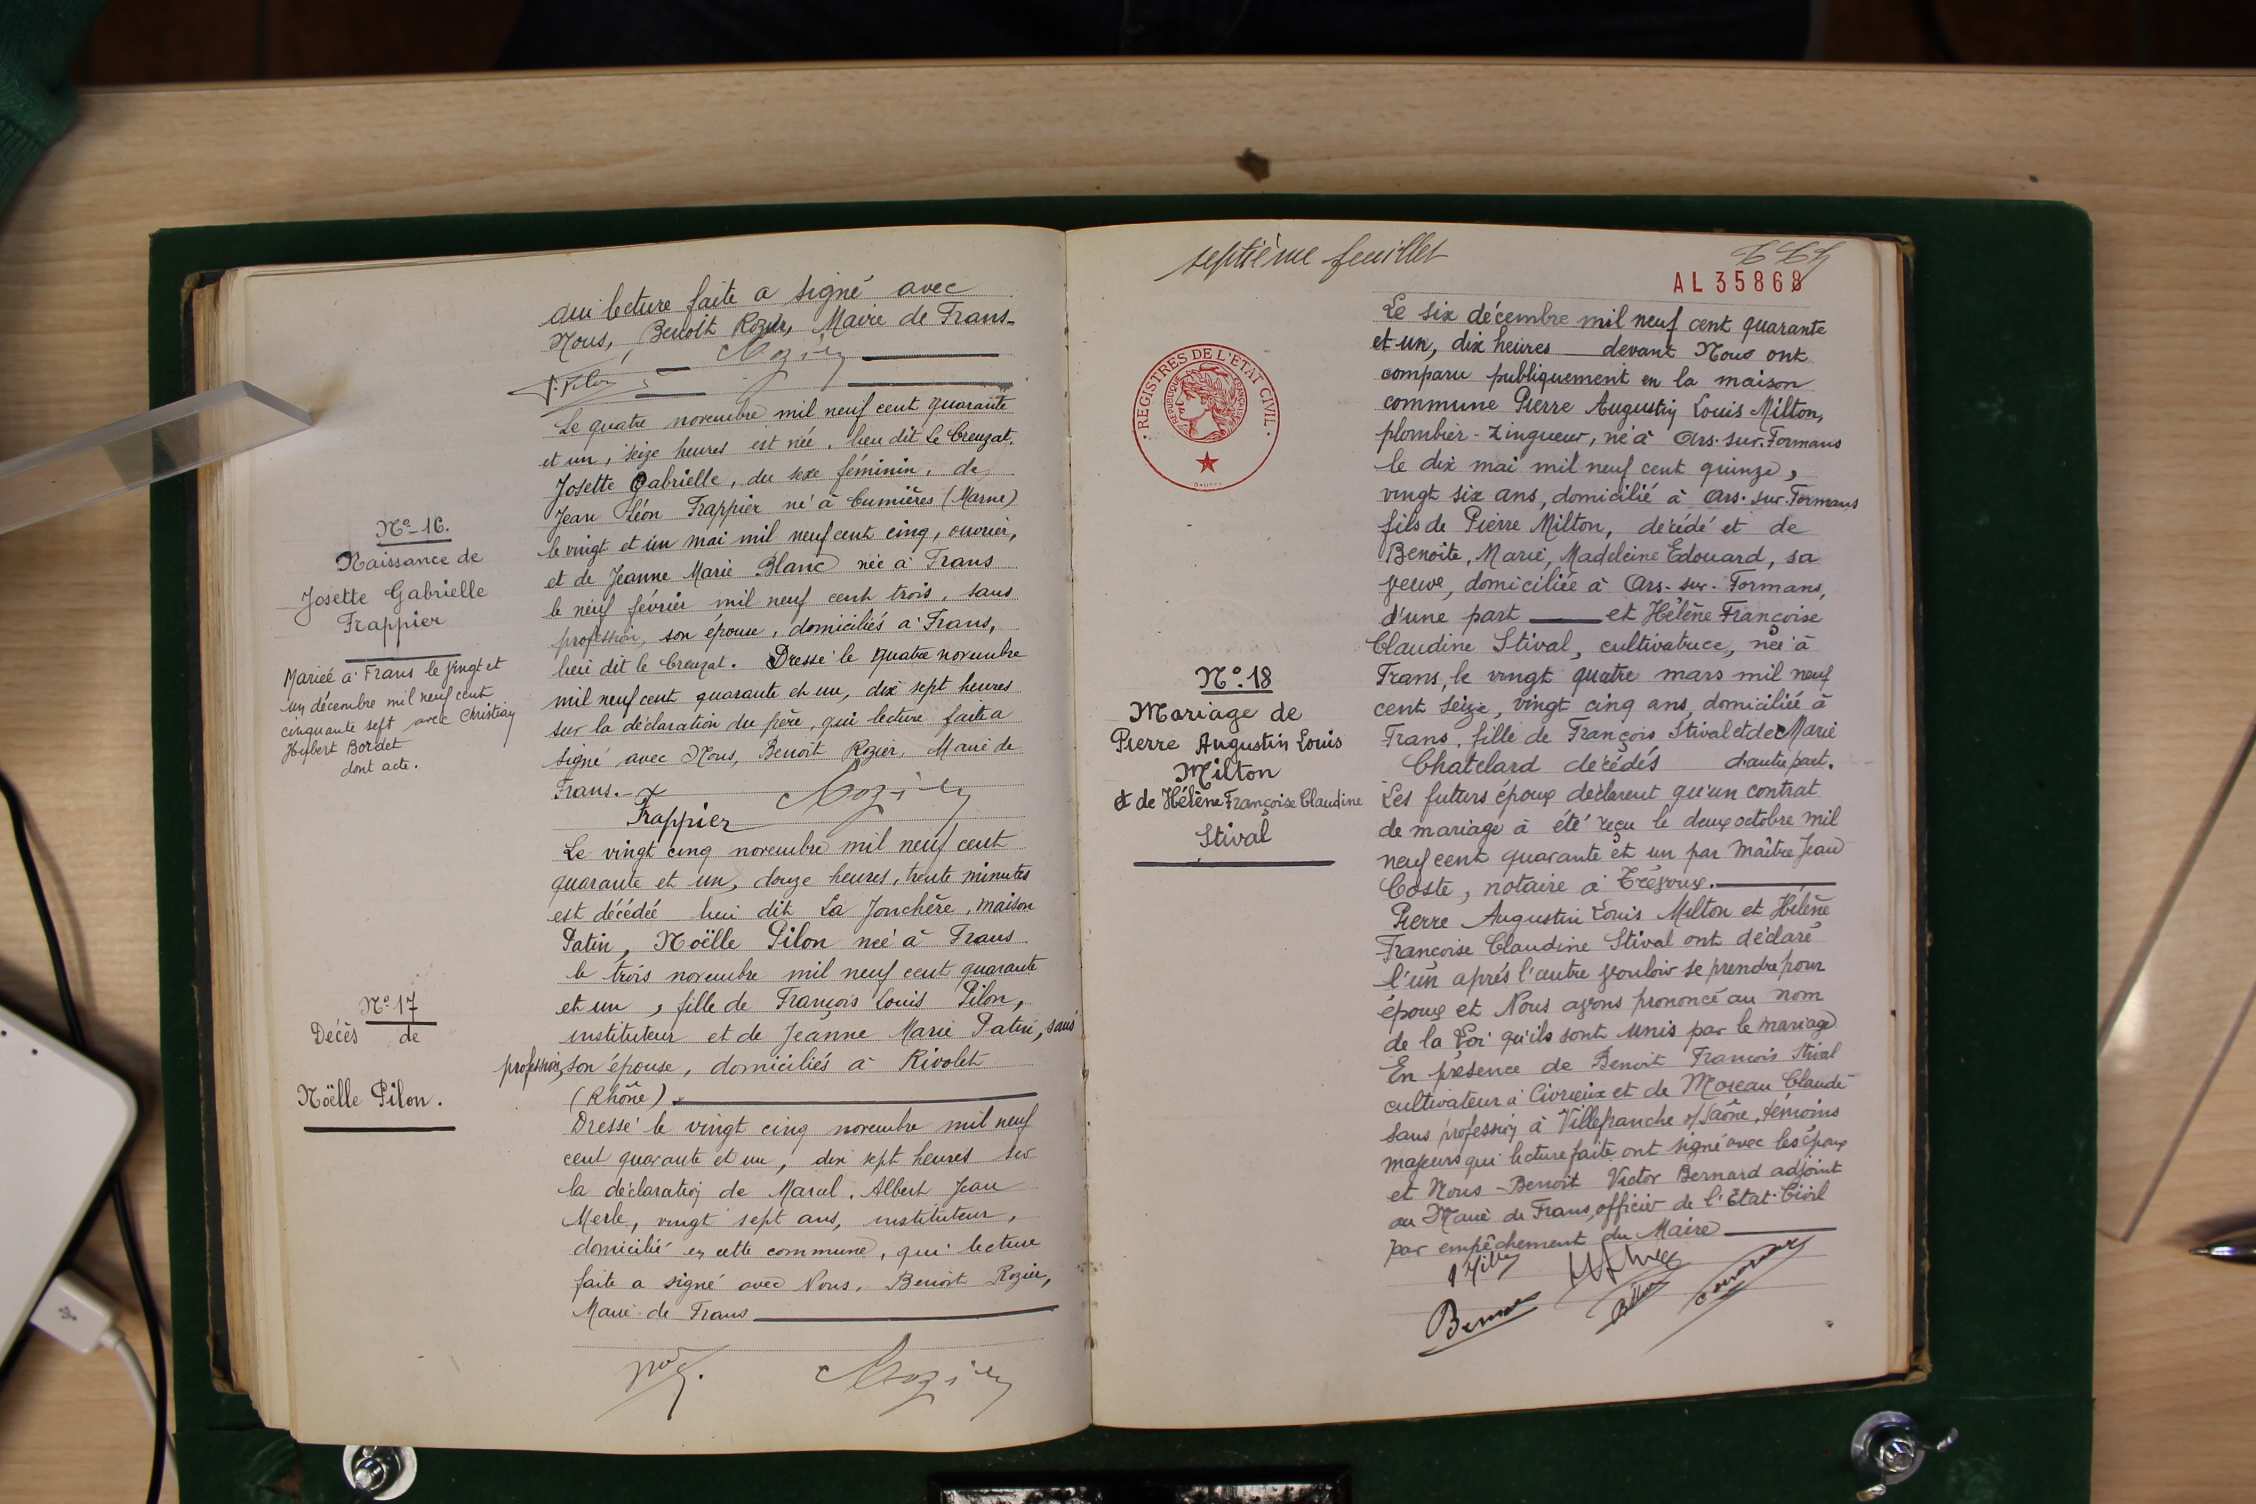 qui lecture faite a signé avec
Nous, Benoît Rozier, Maire de Frans
Rozier
Le quatre novembre mil neuf cent quarante
et un, seize heures est née, lieu dit Le Creuzat,
Josette Gabrielle, du sexe féminin, de
Jean Léon Frappier né à Cumières (Marne)
le vingt et un mai mil neuf cent cinq, ouvrier,
et de Jeanne Marie Blanc née à Frans
le neuf février mil neuf cent trois, sans
profession, son épouse, domiciliés à Frans,
lieu dit le Creuzat. Dressé le quatre novembre
mil neuf cent quarante et un, dix sept heures
sur la déclaration du père, qui lecture faite a
signé avec Nous, Benoît Rozier, Maire de
Frans.
Frappier Rozier
Nº 16.
Naissance de
Josette Gabrielle
Frappier
Mariée à Frans le vingt et
un décembre mil neuf cent
cinquante sept avec Christian
Hubert Bordet
dont acte.
Le vingt cinq novembre mil neuf cent
quarante et un, douze heures, trente minutes
est décédée lieu dit La Jonchère, maison
Patin, Noëlle Pilon née à Frans
le trois novembre mil neuf cent quarante
et un, fille de François Louis Pilon,
instituteur et de Jeanne Marie Patin, sans
profession, son épouse, domiciliés à Rivolet
(Rhône).
Dressé le vingt cinq novembre mil neuf
cent quarante et un, dix sept heures sur
la déclaration de Marcel, Albert Jean
Merle, vingt sept ans, instituteur,
domicilié en cette commune, qui lecture
faite a signé avec Nous, Benoît Rozier,
Maire de Frans
Rozier
Nº 17
Décès de
Noëlle Pilon.
septième feuillet
AL 35868
REGISTRES DE L'ÉTAT CIVIL
RÉPUBLIQUE FRANÇAISE
Le six décembre mil neuf cent quarante
et un, dix heures devant Nous ont
comparu publiquement en la maison
commune Pierre Augustin Louis Milton,
plombier-zingueur, né à Ars-sur-Formans
le dix mai mil neuf cent quinze,
vingt six ans, domicilié à Ars-sur-Formans
fils de Pierre Milton, décédé et de
Benoite, Marie, Madeleine Edouard, sa
veuve, domiciliée à Ars-sur-Formans,
d'une part et Hélène Françoise
Claudine Stival, cultivatrice, née à
Frans, le vingt quatre mars mil neuf
cent seize, vingt cinq ans, domiciliée à
Frans, fille de François Stival et de Marie
Chatelard décédés d'autre part.
Les futurs époux déclarent qu'un contrat
de mariage à été reçu le deux octobre mil
neuf cent quarante et un par Maître Jean
Coste, notaire à Trévoux.
Pierre Augustin Louis Milton et Hélène
Françoise Claudine Stival ont déclaré
l'un après l'autre vouloir se prendre pour
époux et Nous avons prononcé au nom
de la Loi qu'ils sont unis par le mariage
En présence de Benoit François Stival
cultivateur à Civrieux et de Moreau Claude
sans profession à Villefranche s/Saône, témoins
majeurs qui lecture faite ont signé avec les époux
et Nous Benoît Victor Bernard adjoint
au Maire de Frans, officier de l'Etat-Civil
par empêchement du Maire
Nº 18
Mariage de
Pierre Augustin Louis
Milton
et de Hélène Françoise Claudine
Stival